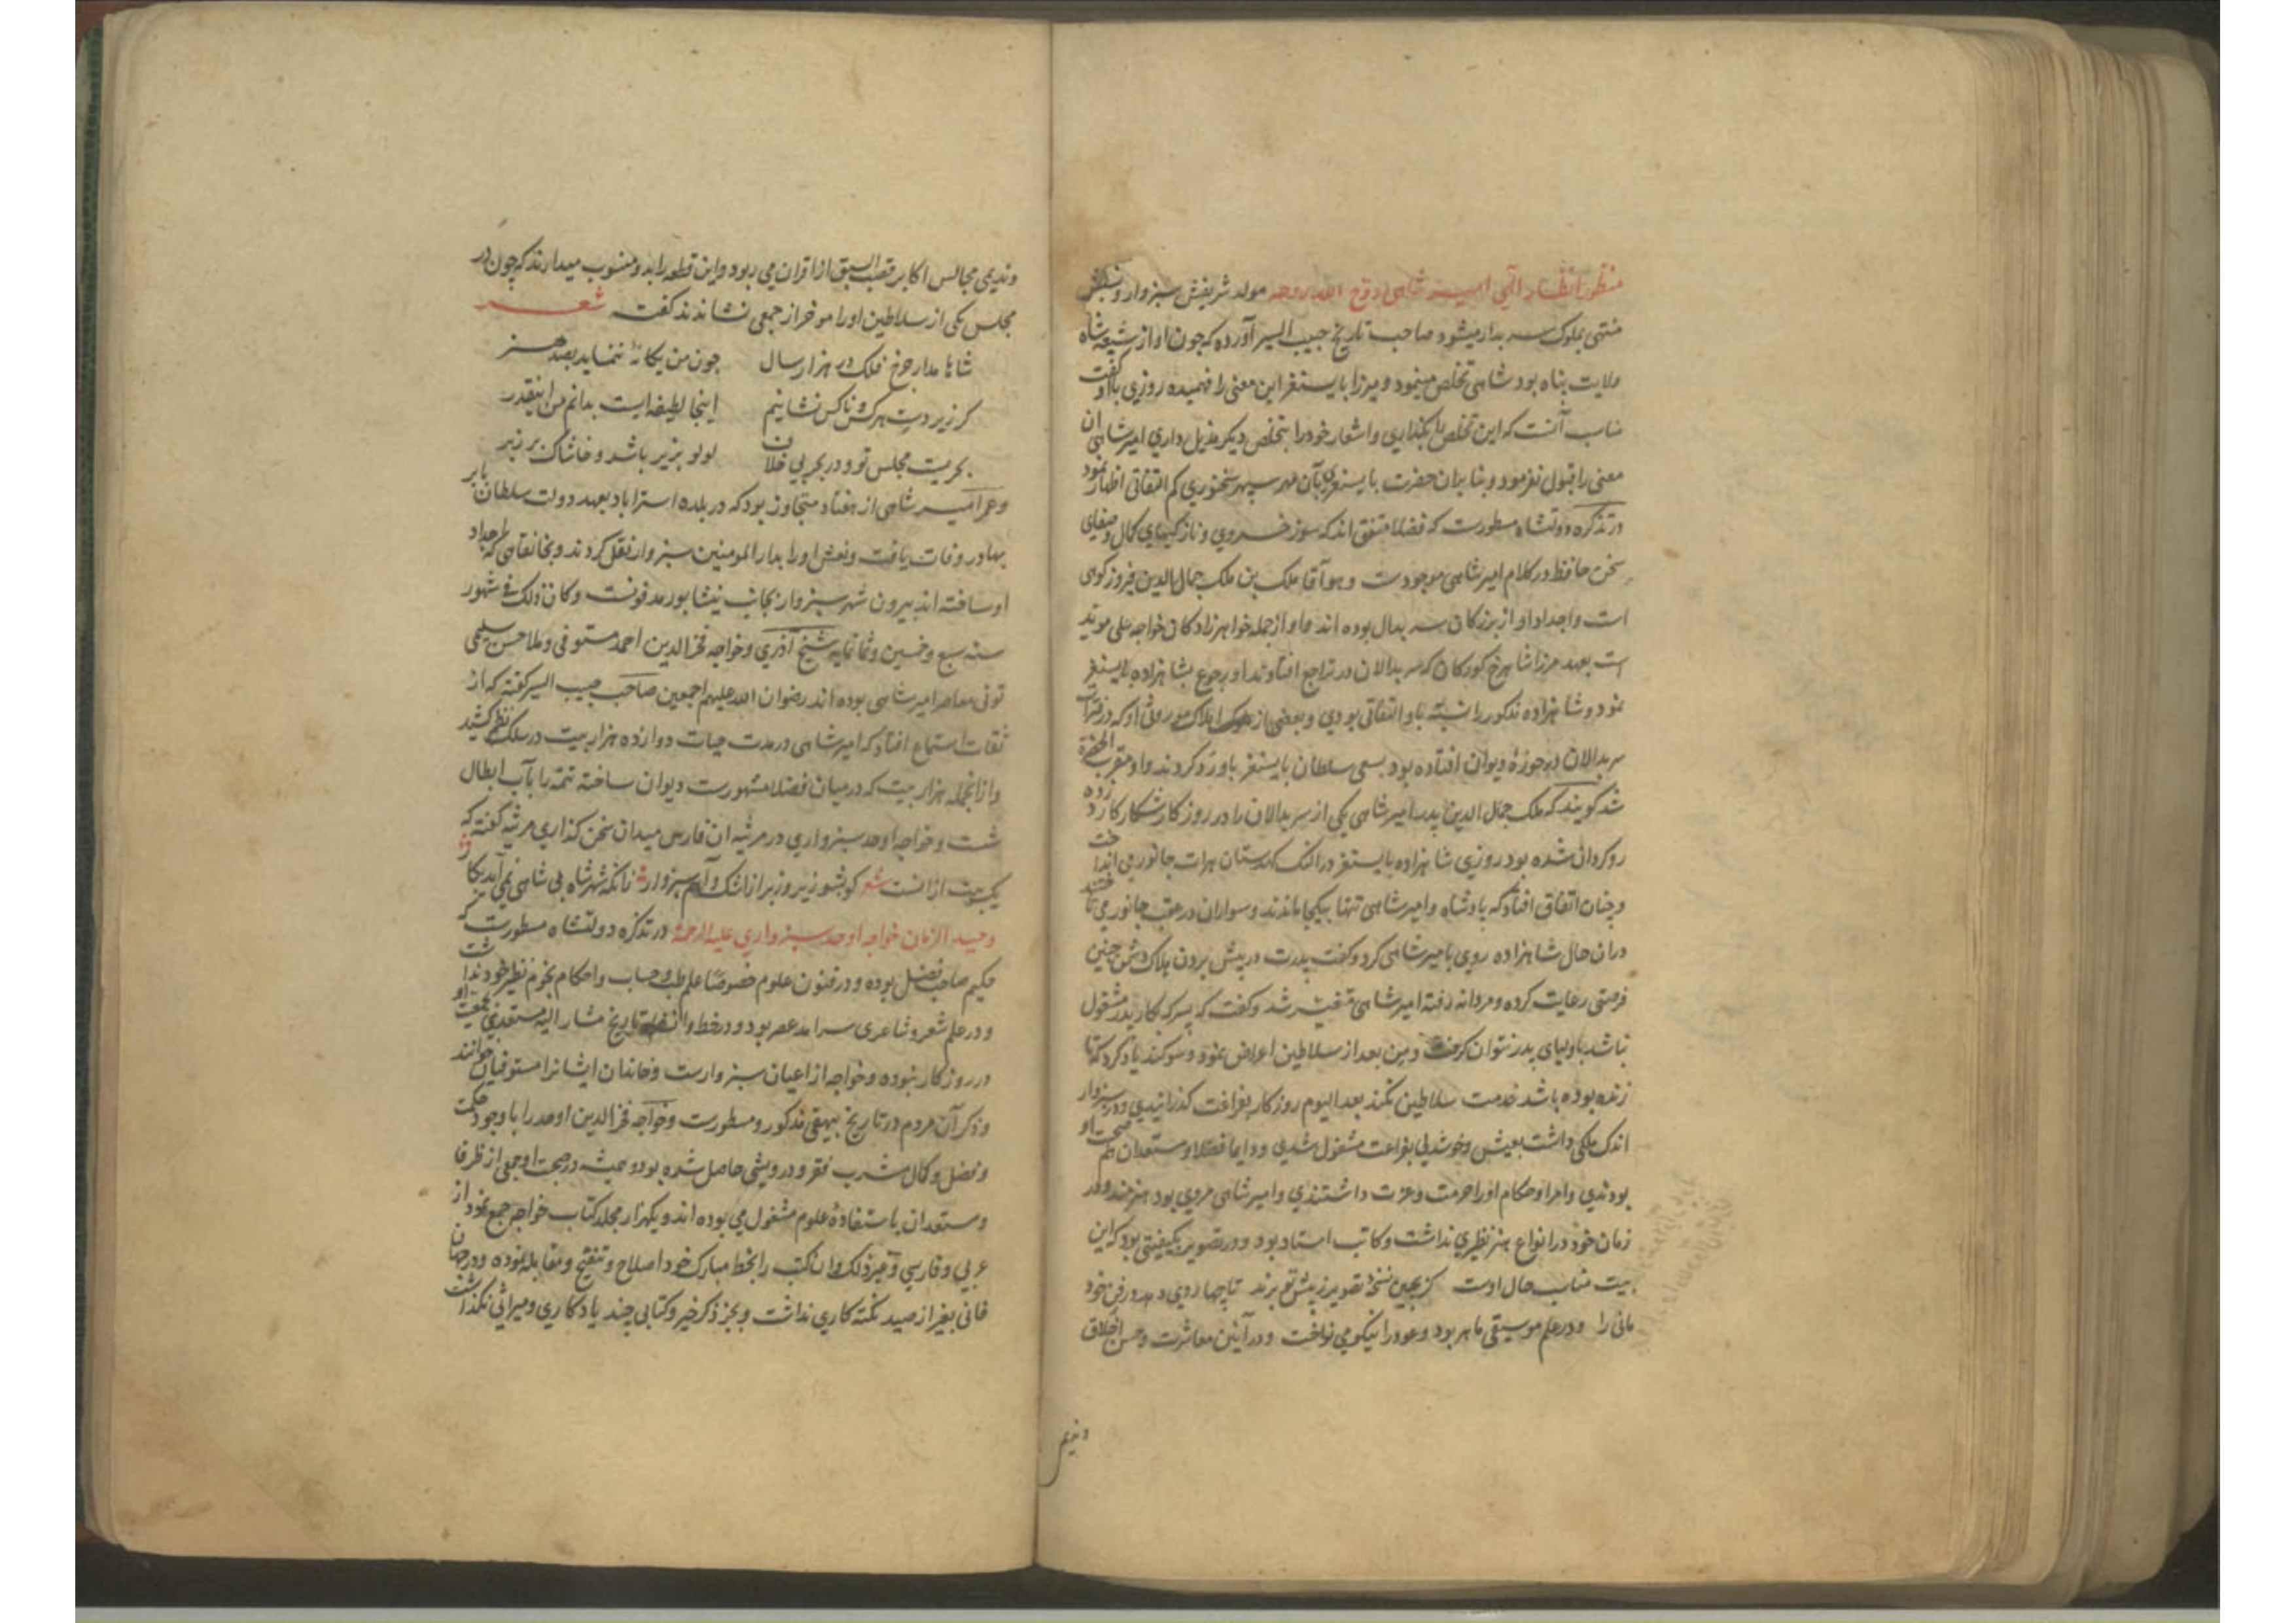 منظور انظار الهی امیر شاهی روّح الله روحه مولد شریفش سبزوار و نسبش
منتهی بملوک سربدار میشود صاحب تاریخ حبیب السیر آورده که چون او از شیعه شاه
ولایت پناه بود شاهی تخلص مینمود و میرزا بایسنغر این معنی را فهمیده روزی باو گفت
مناسب آنست که این تخلص را بگذاری و اشعار خود را بتخلص دیگر مذیل داری امیر شاهی آن
معنی را قبول نفرمود و بنابران حضرت بایسنغری بآن مهر سپهر سخنوری کم التفاتی اظهار نمود
در تذکره دولتشاه مسطورست که فضلا متفق اند که سوز خسروی و نازکیهای کمال و صفای
سخن حافظ در کلام امیر شاهی موجودست و هو آقا ملک بن ملک جمال الدین فیروزکوهی
است و اجداد او از بزرکان سربدال بوده اند و او از جمله خواهرزادکان خواجه علی موید
است بعهد میرزا شاهرخ کورکان که سربدالان در تراجع افتاوند او رجوع بشاهزاده بایسنغر
نمود و شاهزاده مذکور را نسبة باو التفاتی بودی و بعضی از املاک موروثی او که در فترات
سربدالان در حوزهٔ دیوان افتاده بود بسعی سلطان بایسنغر باو رد کردند و او مقرب الحضرة
شد کویند که ملک جمال الدین پدر امیر شاهی یکی از سربدالان را در روز کار شکار کارد زده
روکردان شده بود روزی شاهزاده بایسنغر در النک کهدستان هرات جانور می انداخت
و چنان اتفاق افتاد که پادشاه و امیر شاهی تنها بیکجا ماندند و سواران در عقب جانور می تاختند
دران حال شاهزاده روی بامیر شاهی کرد و کفت پدرت در پیش بردن هلاک دشمن چنین
فرصتی رعایت کرده و مردانه رفته امیر شاهی متغیر شد و کفت که پسر که کار پدر مشغول
نباشد باولیای پدر نتوان کرفت و من بعد از سلاطین اعراض نمود و سوکند یاد کرد که تا
زنده بوده باشد خدمت سلاطین نکند بعد الیوم روزکار بفراغت کذرانیدی و در سبزوار
اندک ملکی داشت بعیش و خوشدلی بفراعت مشغول شدی و دایما فضلا و مستعدان هم صحبت او
بودندی و امرا و حکام او را حرمت و عزت داشتندی و امیر شاهی مردی بود هنرمند و در
زمان خود در انواع هنر نظیری نداشت و کاتب استاد بود و در تصویر بکیفیتی بود که این
بیت مناسب حال اوست کر بچین نسخهٔ تصویر ز پیش تو برند تا چها روی دهد در فن خود
مانی را و در علم موسیقی ماهر بود و عود را نیکو می نواخت و در آئین معاشرت و حسن اخلاق
و ندیمی
و ندیمی مجالس اکابر قصب السبق از اقران می ربود و این قطعه را بدو منسوب میدارند که چون در
مجلس یکی از سلاطین او را موخر از جمعی نشاندند کفت شعر
شاها مدار چرخ فلک در هزار سال چون من یکانهٔ ننماید بصد هنر
کر زیر دست هر کس و ناکس نشانیم اینجا لطیفه ایست بدانم من اینقدر
بحریست مجلس تو و در بحر بی خلاف لولو بزیر باشد و خاشاک بر زبر
و عمر امیر شاهی از هفتاد متجاوز بود که در بلده استراباد بعهد دولت سلطان بابر
بهادر وفات یافت و نعش او را بدار المومنین سبزوار نقل کردند و بخانقاهی که اجداد
او ساخته اند بیرون شهر سبزوار بجانب نیشابور مدفونست و کان ذلک فی شهور
سنه سبع و خمسین و ثمانمایه شیخ آذری و خواجه فخر الدین احمد مستوفی و ملا حسن سلیمی
تونی معاصر امیر شاهی بوده اند رضوان الله علیهم اجمعین صاحب حبیب السیر کفته که از
ثقات استماع افتاد که امیر شاهی در مدت حیات دوازده هزار بیت در سلک نظم کشید
و ازانجمله هزار بیت که در میان فضلا مشهورست دیوان ساخته تتمه را بآب ابطال
شست و خواجه اوحد سبزواری در مرثیه آن فارس میدان سخن کذاری مرثیه کفته که
یک بیت ازانست شعر کو بشو زیر و زبر از اشک و آهم سبزوار زانکه شهر شاه بی شاهی نمی آید بکار
وحید الزمان خواجه اوحد سبزواری علیه الرحمة در تذکره دولتشاه مسطورست که
حکیم صاحب فضل بوده و در فنون علوم خصوصًا علم طب و حساب و احکام نجوم نظیر خود نداشت
و در علم شعر و شاعری سرامد عصر بود و در خط و انشا و تاریخ مشار الیه مستعدی بجمعیت او
در روزکار نبوده و خواجه از اعیان سبزوارست و خاندان ایشانرا مستوفیان خوانند
و ذکر آن مردم در تاریخ بیهقی مذکور و مسطورست و خواجه فخر الدین اوحد را با وجود حکمت
و فضل و کمال مشرب فقر و درویشی حاصل شده بود و همیشه در صحبت او جمعی از ظرفا
و مستعدان باستفادهٔ علوم مشغول می بوده اند و یکهزار مجلد کتاب خواجه جمع نمود از
عربی و فارسی و غیر ذلک و ان کتب را بخط مبارک خود اصلاح و تنقیح و مقابله نموده و در جهان
فانی بغیر از صید نکته کاری نداشت و بجز ذکر خیر و کتابی چند یادکاری و میراثی نکذاشت